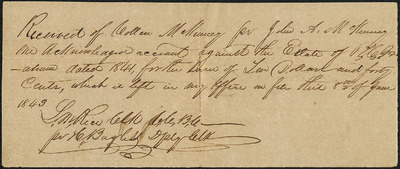 Received of Collin McKinney per John A. McKinney
one acknowledged account against the Estate of
dated 1841, for the sum of Two Dollars and forty
Cents, which is left in my office on file this 8th of June
1843
Clk
per Bagby Dpty Clk